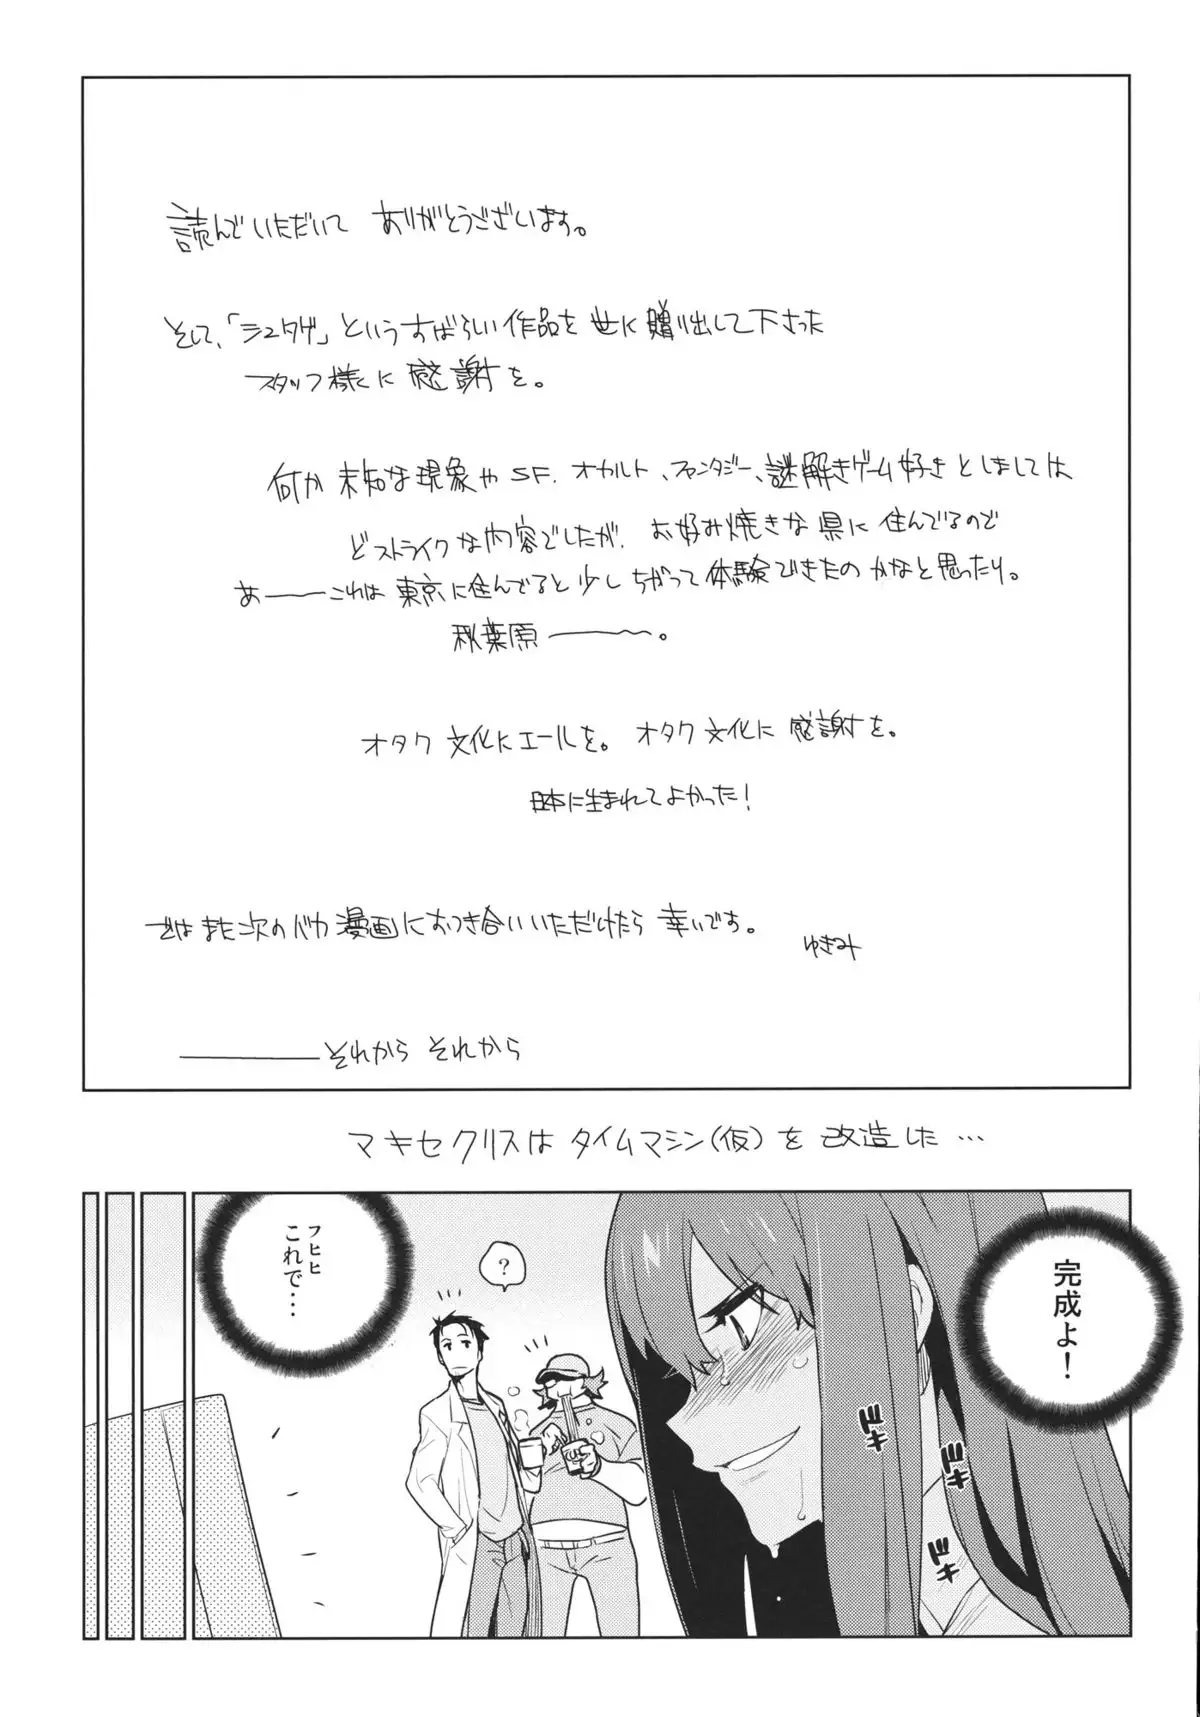 読んでいただいて ありがとうございます。
そして、「シュタゲ」というすばらしい作品を世に贈り出して下さった
スタッフ様々に感謝を。
何か未知な現象やSF、オカルト、ファンタジー、謎解きゲーム好きとしましては
どストライクな内容でしたが、お好み焼きな県に住んでるので
あーーーこれは東京に住んでると少しちがって体験できたのかなと思ったり。
秋葉原ーーー〜。
オタク文化にエールを。オタク文化に感謝を。
日本に生まれてよかった!
ではまた次のバカ漫画におつき合いいただけたら幸いです。
ゆきみ
―――それから それから
マキセクリスは タイムマシン(仮)を 改造した…
完成よ!
ドキ
ドキ
ドキ
?
フヒヒ
これで・・・